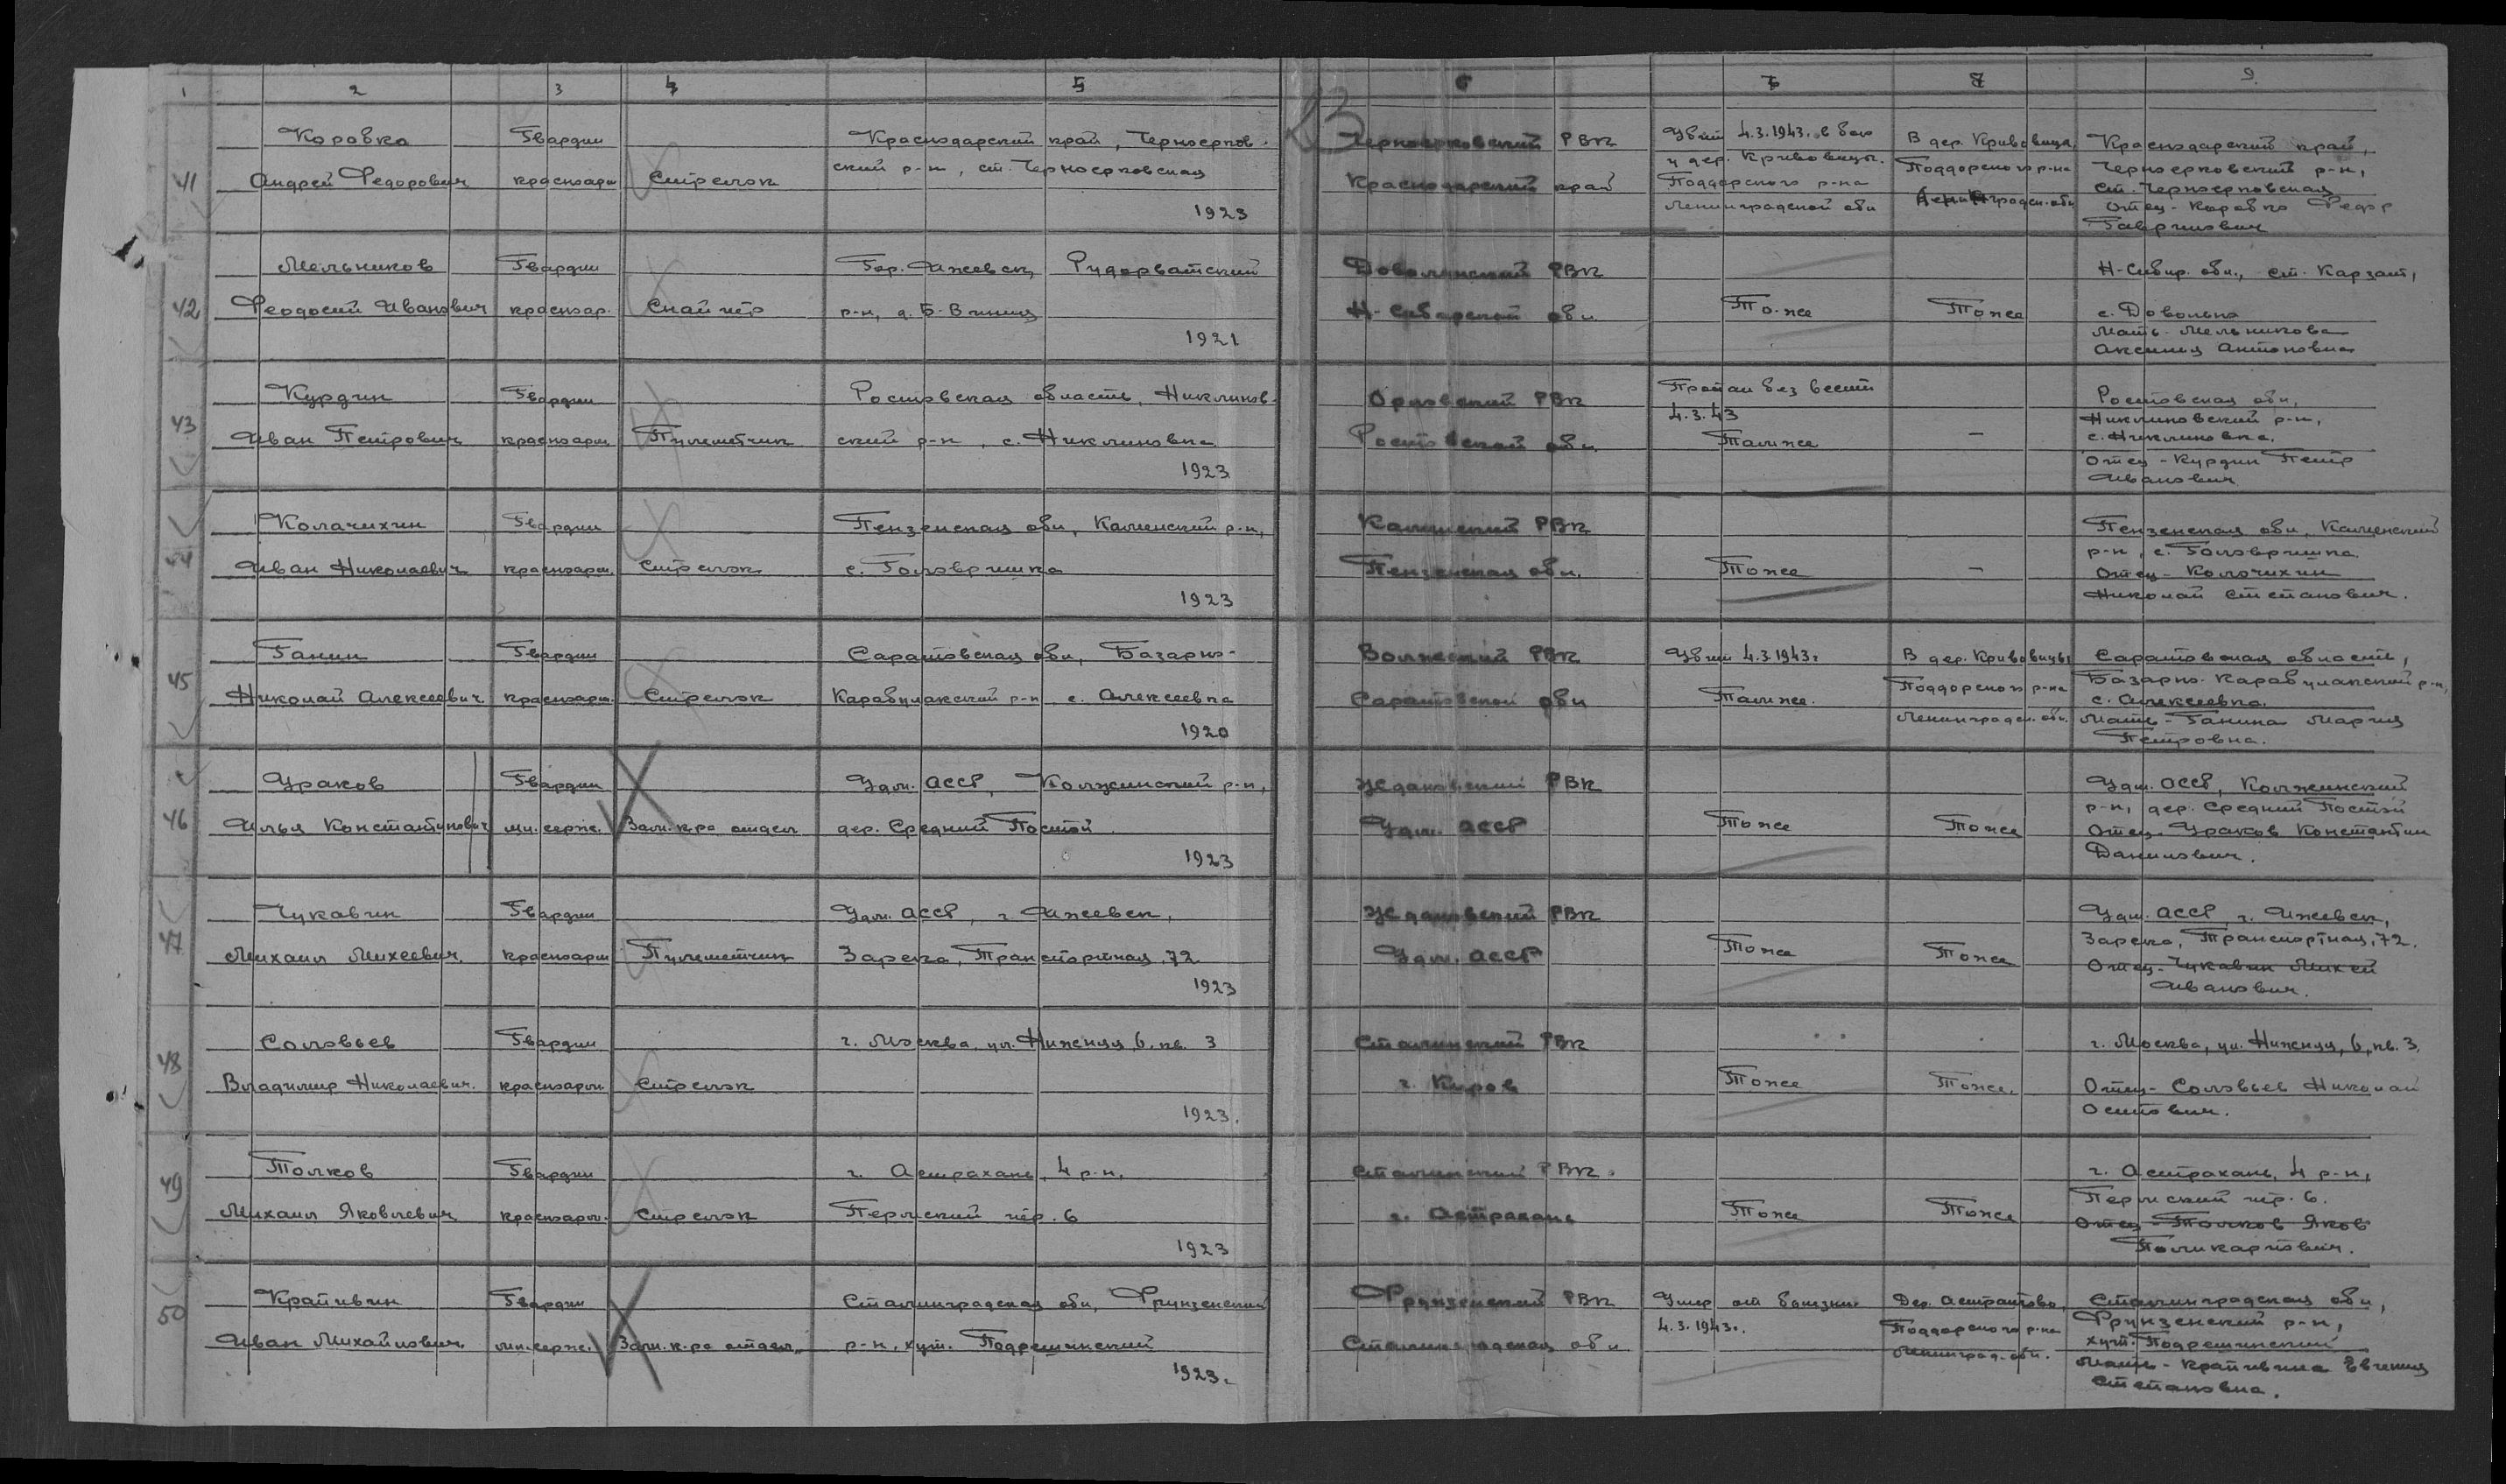 1 2 3 4 5 6 7 8 9
23
41
Коровка
Андрей Федорович
Гвардии
красноарм
Стрелок
Краснодарский край, Черноерков-
ский р-н, ст. Черноерковская
1923
Черноерковский РВК
Краснодарский край
Убит 4.3.1943. в бою
у дер. Кривовицы.
Поддорского р-на
Ленинградской обл
В дер. Кривовицы,
Поддорского р-на
Ленинградск. обл
Краснодарский край,
Черноерковский р-н,
ст. Черноерковская
Отец - Коровко Федор
Гаврилович
42
Мельников
Феодосий Иванович
Гвардии
красноар.
Снайпер
Гор. Ижевск,
р-н, д. Б-
1921
Доволенский РВК
Н-Сибирской обл.
То-же
Тоже
Н-Сибир. обл., ст. Каргат,
с. Довольно
Мать - Мельникова
Аксинья Антоновна
43
Курдин
Иван Петрович
Гвардии
красноарм
Пулеметчик
Ростовская область, Никлинов-
ский р-н, с. Никлиновка
1923
Орловский РВК
Ростовской обл.
Пропал без вести
4.3.43
Тамже
-
Ростовская обл,
Никлиновский р-н,
с. Никлиновка.
Отец - Курдин Петр
Иванович
44
Колачихин
Иван Николаевич
Гвардии
красноарм.
Стрелок
Пензенская обл, Каменский р-н,
с. Головкришка
1923
Каменский РВК
Пензенская обл.
Тоже
-
Пензенская обл, Каменский
р-н, с. Головкришка
Отец - Колочихин
Николай Степанович.
45
Ганин
Николай Алексеевич
Гвардии
красноарм.
Стрелок
Саратовская обл, Базарно-
Карабулакский р-н с. Алексеевка
1920
Волжский РВК
Саратовской обл
Убит 4.3.1943г
Тамже.
В дер. Кривовицы
Поддорского р-на
Ленинградск. обл.
Саратовская область,
Базарно-Карабулакский р-н,
с. Алексеевка.
Мать - Ганина Мария
Петровна.
46
Ураков
Илья Константинович
Гвардии
мл. серж.
Зам. к-ра отдел
Удм. АССР, Колжинский р-н,
дер. Средний Постой
1923
Ждановский РВК
Удм. АССР
Тоже
Тоже
Удм. АССР, Колжинский
р-н, дер. Средний Постой
Отец - Ураков Константин
Данилович.
47
Чукавин
Михаил Михеевич.
Гвардии
красноарм
Пулеметчик
Удм. АССР, г. Ижевск,
Зарека, Транспортная, 72
1923
Ждановский РВК
Удм. АССР
Тоже
Тоже
Удм. АССР, г. Ижевск,
Зарека, Транспортная, 72.
Отец - Чукавин Михей
Иванович.
48
Соловьев
Владимир Николаевич.
Гвардии
красноарм
Стрелок
г. Москва, ул. Нижняя, 6, кв. 3
1923.
Сталинский РВК
г. Киров
Тоже
Тоже.
г. Москва, ул. Нижняя, 6, кв. 3.
Отец - Соловьев Николай
Осипович.
49
Толков
Михаил Яковлевич
Гвардии
красноарм.
Стрелок
г. Астрахань, 4 р-н,
Пермский пер. 6
1923
Сталинский РВК
г. Астрахань
Тоже
Тоже
г. Астрахань, 4 р-н,
Пермский пер. 6.
Отец - Толков Яков
Поликарпович.
50
Крапивин
Иван Михайлович.
Гвардии
мл. серж.
Зам. к-ра отдел.
Сталинградская обл, Фрунзенский
р-н, хут. Подрешинский
1923.
Фрунзенский РВК
Сталинградская обл
Умер от болезни
4.3.1943г.
Дер. Астратово,
Поддорского р-на
Ленинград. обл.
Сталинградская обл,
Фрунзенский р-н,
хут. Подрешинский
Мать - Крапивина Евгения
Степановна.